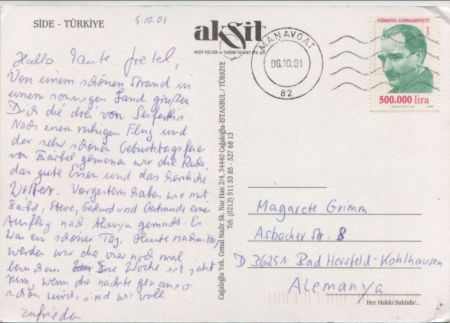 SIDE - TÜRKİYE
5.10.01
Hallo Tante Gretel,
Von einem schönen Strand in
einem sonnigen Land grüßen
Dich die drei von Seiferths
Nach einem ruhigen Flug und
der sehr schönen Geburtstagsfeier
von Bärbel genießen wir die Ruhe,
das gute Essen und das herrliche
Wetter. Vorgestern haben wir mit
Bärbel, Steve, Gerhard und Gertrauds einen
Ausflug nach Alanya gemacht. Es
war ein schöner Tag. Heute nachmittag
werden wir die vier noch mal
Eine Woche ist jetzt
rum, wenn die nächste genauso
schön wird, sind wir voll
zufrieden
akşit
AKŞİT KÜLTÜR ve TURİZM TİCARET LTD. ŞTİ.
Cağaloğlu Yok. Cemal Nadir Sk. Nur Han 2/4, 34440 Cağaloğlu-İSTANBUL / TÜRKİYE
Tel: (0212) 511 53 85 - 527 68 13
MANAVGAT
06.10.01
82
TÜRKİYE CUMHURİYETİ
500.000 lira
Magarete Grimm
Asbacher Str. 8
D 36251 Bad Hersfeld-Kohlhausen
Alemanya
Her Hakkı Saklıdır...